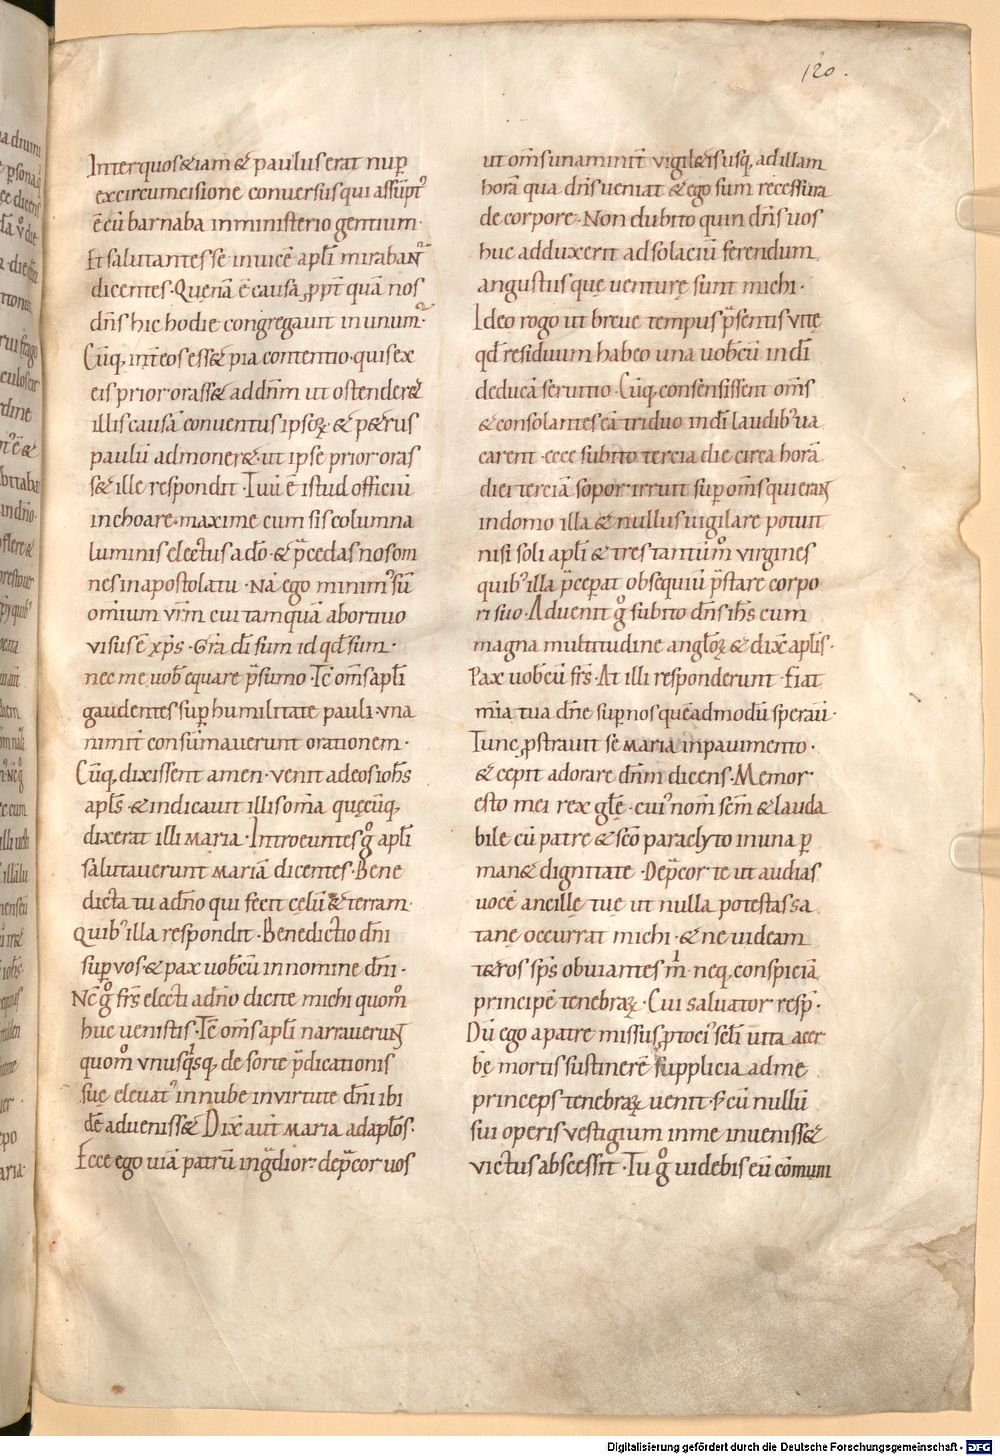 120.
Inter quos & iam & paulus erat nup̄
ex circumcisione conversus qui assūpt᾿
ē cū barnaba in ministerio gentium·
Et salutantes se invicē apl̄i mirabant̄
dicentes· Quęnā ē causa, ꝓpt̄ quā nos
dn̄s hic hodie congregavit in unum·
Cūq, int̄ eos ess& pia contentio· quis ex
eis prior orass& ad dn̄m ut ostender&
illis causā conventus ipsoꝝ· & p&rus
paulū admoner& ut ipse prior oras
s& ille respondit· Tuū ē istud officiū
inchoare· maxime cum sis columna
luminis electus a dō· & p̄cedas nos om
nes in apostolatu· Nā ego minim᾿ sū
om̄ium vr̄m cui tam quā abortivo
visus ē xp̄s· Gr̄a dī sum id qd̄ sum·
nec me vob̄ equare p̄sumo· Tc̄ om̄s apl̄i
gaudentes sup̄ humilitate pauli· una
nimit̄ consūmaverunt orationem·
Cūq, dixissent amen· venit ad eos ioh̄s
apl̄s· & indicavit illis om̄ia quęcūq,
dixerat illi maria· Introeuntes gͦ apl̄i
salutaverunt mariā dicentes· Bene
dicta tu a dn̄o qui fecit cęlū & terram·
Quib᾿ illa respondit· Benedictio dn̄i
sup̄ vos· & pax vob̄cū in nomine dn̄i·
Nc̄ gͦ fr̄s electi a dn̄o dicite michi quomͦ
huc venistis· Tc̄ om̄s apl̄i narraverunt
quomͦ unusq̄sq, de sorte p̄dicationis
suę elevat᾿ in nube in virtute dn̄i ibi
dē adveniss& Dix̄ aut̄ maria ad apl̄os·
Ecce ego viā patrū ingͣdior· dep̄cor vos
ut om̄s unanimit̄ vigil&is usq, ad illam
horā qua dn̄s veniat & ego sum recessura
de corpore· Non dubito quin dn̄s vos
huc adduxerit ad solaciū ferendum
angustiis quę venturę sunt michi·
Ideo rogo ut breve tempus p̄sentis vitę
qd̄ residuum habeo una vob̄cū in dī
deducā servitio· Cūq, consensissent om̄s
& consolantes eā triduo in dī laudib᾿ va
carent· ecce subito tercia die circa horā
diei terciā sopor irruit sup̄ om̄s qui erant
in domo illa & nullus vigilare potuit
nisi soli apl̄i & tres tantūmͦ virgines
quib᾿ illa p̄cep̄at obsequiū p̄stare corpo
ri suo· Advenit gͦ subito dn̄s ih̄s cum
magna multitudine angl̄oꝝ & dix̄ apl̄is·
Pax vob̄cū fr̄s· At illi responderunt· fiat
mīa tua dn̄e sup̄ nos quēadmodū speravī·
Tunc ꝓstravit se maria in pavimento·
& cepit adorare dn̄m dicens· Memor
esto mei rex gl̄ę· cui᾿ nom̄ sc̄m & lauda
bile cū patre & sc̄o paraclyto in una p̄
man& dignitate· Dep̄cor te ut audias
vocē ancillę tuę ut nulla potestas sa
tanę occurrat michi· & ne videam
t&ros sp̄s obviantes m̄· neq, conspiciā
principē tenebraꝝ· Cui salvator resp̄·
Dū ego a patre missus, ꝓ toci᾿ sc̄li vita acer
bę mortis sustinerē supplicia ad me
princeps tenebraꝝ venit· S; cū nullū
sui operis vestigium in me inveniss&
victus abscessit· Tu gͦ videbis eū cōmuni
Digitalisierung gefördert durch die Deutsche Forschungsgemeinschaft - DFG